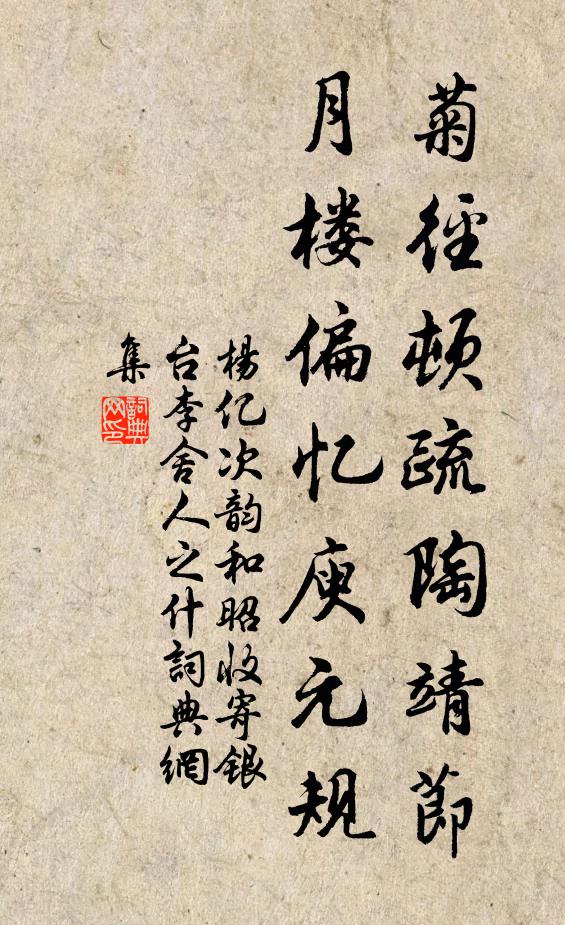 菊径顿疏陶靖节
月楼偏忆庾元规
楊亿次韵和昭收寄银
台李舍人之什詞典網
集
詞典网印